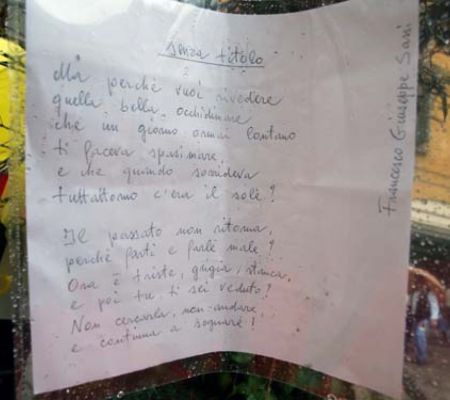 Senza titolo
Ma perchè vuoi rivedere
quella bella, occhidimare
che un giorno ormai lontano
ti faceva spasimare,
e che quando sorrideva
tuttattorno c'era il sole?
Il passato non ritorna,
perchè farti e farle male?
Ora è triste, grigia, stanca,
e poi tu, ti sei veduto?
Non cercarla, non andare,
e continua a sognare!
Francesco Giuseppe Sassi